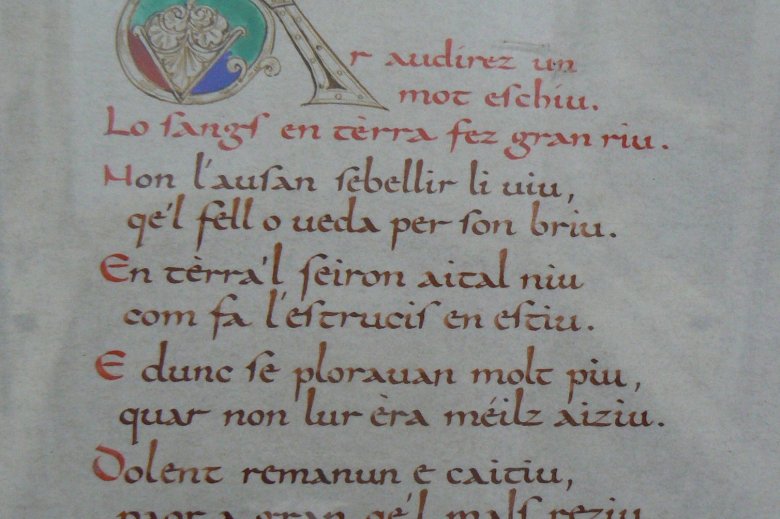 Ar audirez un
mot eschiu.
Lo sangs en tèrra fez gran riu.
Non l'ausan sebellir li uiu,
qe'l fell o ueda per son briu.
En tèrra'l seiron aital niu
com fa l'estrucis en estiu.
E dunc se plorauan molt piu,
quar non lur èra méilz aiziu.
Dolent remanun e caitiu,
paor a gran qe'l mals reziu